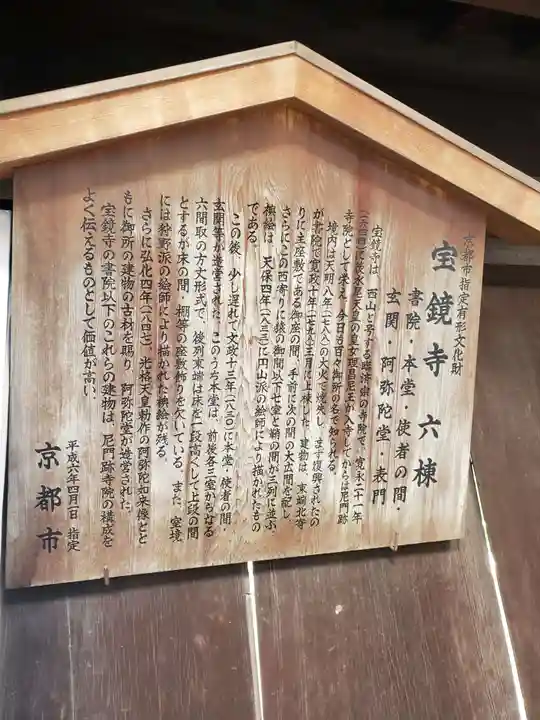 京都市指定有形文化財
宝鏡寺 六棟
書院・本堂・使者の間・
玄関・阿弥陀堂・表門
宝鏡寺は、西山と号する臨済宗の寺院で、寛永二十一年
(一六四四)に後水尾天皇の皇女理昌尼王が入寺してからは尼門跡
寺院として栄え、今日も百々御所の名で知られる。
境内は天明八年(一七八八)の大火で焼失し、まず復興されたの
が書院で寛政十年(一七九八)三月に上棟した。建物は、東端北寄
りに主座敷である御座の間、手前に次の間の大広間を配し、
さらにこの西寄りに猿の御間以下七室と鞘の間が三列に並ぶ。
襖絵は、天保四年(一八三三)に円山派の絵師により描かれたもの
である。
この後、少し遅れて文政十三年(一八三〇)に本堂・使者の間・
玄関等が造営された。このうち本堂は、前後各三室からなる
六間取の方丈形式で、後列東端は床を一段高くして上段の間
とするが床の間・棚等の座敷飾りを欠いている。また、室境
には狩野派の絵師により描かれた襖絵が残る。
さらに弘化四年(一八四七)、光格天皇勅作の阿弥陀如来像とと
もに御所の建物の古材を賜り、阿弥陀堂が造営された。
宝鏡寺の書院以下のこれらの建物は、尼門跡寺院の構成を
よく伝えるものとして価値が高い。
平成六年四月一日 指定
京都市